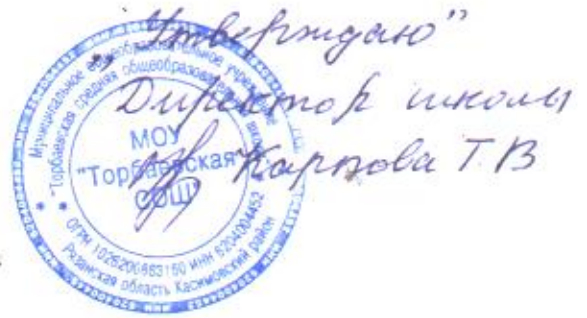 „Утверждаю"
Директор школы
Карпова Т.В
Муниципальное общеобразовательное учреждение
"Торбаевская средняя общеобразовательная школа"
МОУ
"Торбаевская
СОШ"
ОГРН 1026200863160 ИНН 6204004452
Рязанская область Касимовский район